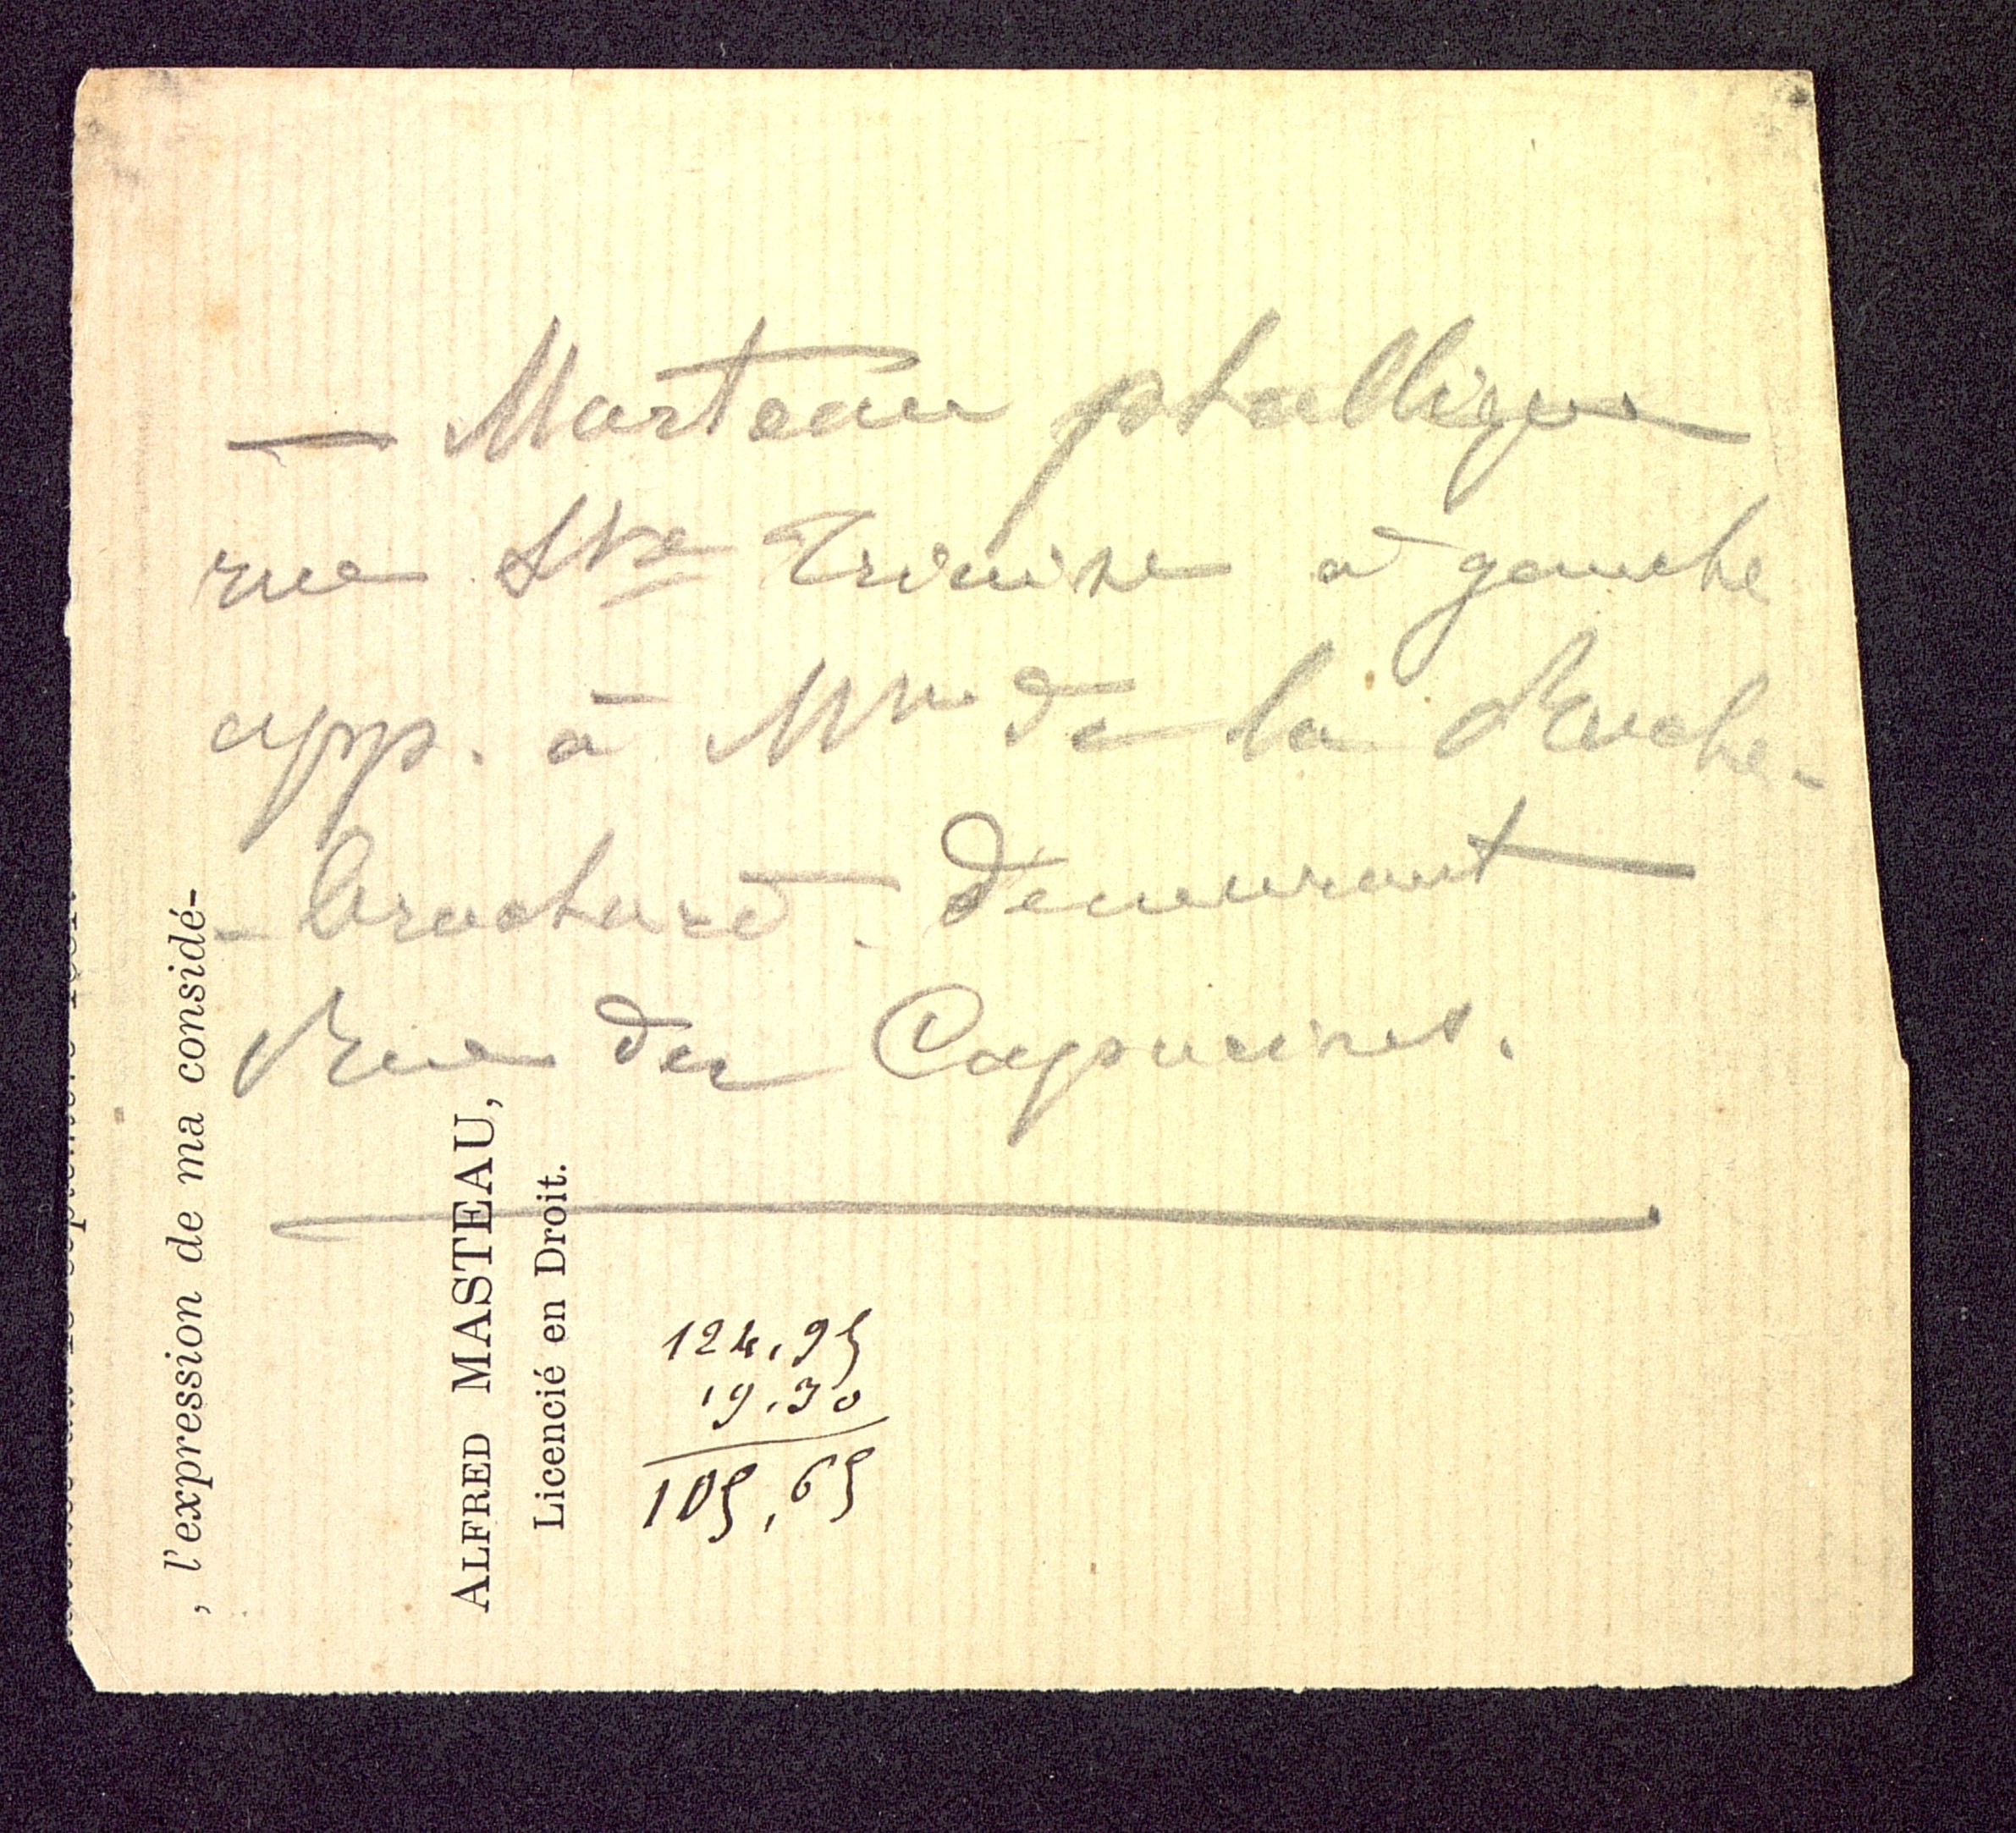 — Marteau phallique
rue Ste Trinité à gauche
app. à Mme de la Roche-
- brochard. demeurant
Rue des Capucines.
, l'expression de ma considé-
ALFRED MASTEAU,
Licencié en Droit.
124,95
19,30
105,65